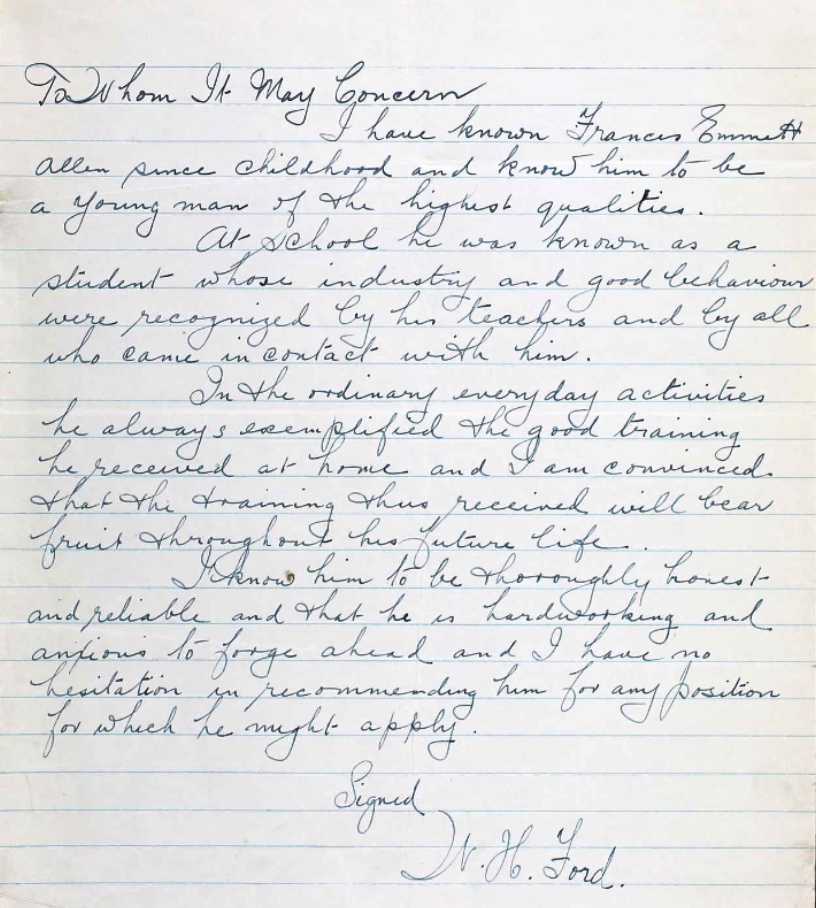 To Whom It May Concern
I have known Francis Emmett
Allen since childhood and know him to be
a young man of the highest qualities.
At school he was known as a
student whose industry and good behaviour
were recognized by his teachers and by all
who came in contact with him.
In the ordinary everyday activities
he always exemplified the good training
he received at home and I am convinced
that the training thus received will bear
fruit throughout his future life.
I know him to be thoroughly honest
and reliable and that he is hardworking and
anxious to forge ahead and I have no
hesitation in recommending him for any position
for which he might apply.
Signed
W. H. Ford.